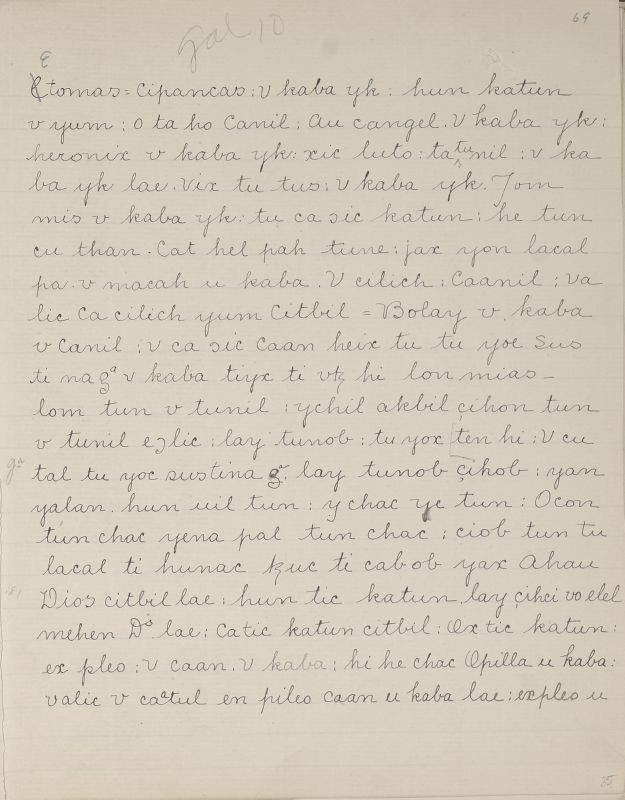 69
Gal 10
E
Etomas = Cipancas : v kaba yk : hun katun
v yum : O ta ho Canil : Au cangel . V kaba yk :
heronix v kaba yk : xic luto : tatunil : v ka
ba yk lae . Vix tu tus : V kaba yk . Jom
mis v kaba yk : tu ca sic katun : he tun
cu than . Cat hel pah tune : jax yon lacal
pa . v macah u kaba . V cilich : Caanil : va
lic Ca cilich yum Citbil = Bolay v . kaba
v Canil : v ca sic Caan heix tu tu yoc Sus
ti na ga v kaba tiyx ti vtz hi lon mias _
lom tun v tunil : ychil akbil çihon tun
v tunil eɔlic : lay tunob : tu yox ten hi : V cu
ga tal tu yoc sustina gr . lay tunob çihob : yan
yalan . hun uil tun : y chac ye tun : Ocon
tun chac yena pal tun chac : ciob tun tu
lacal ti hunac tzuc ti cab ob yax Ahau
181 Dios citbil lae : hun tic katun . lay çihci vo elel
mehen Ds lae : Catic katun citbil : Ox tic katun :
ex pleo : V caan . V kaba : hi he chac Opilla u kaba :
valic v catul en pileo caan u kaba lae : expleo u
35